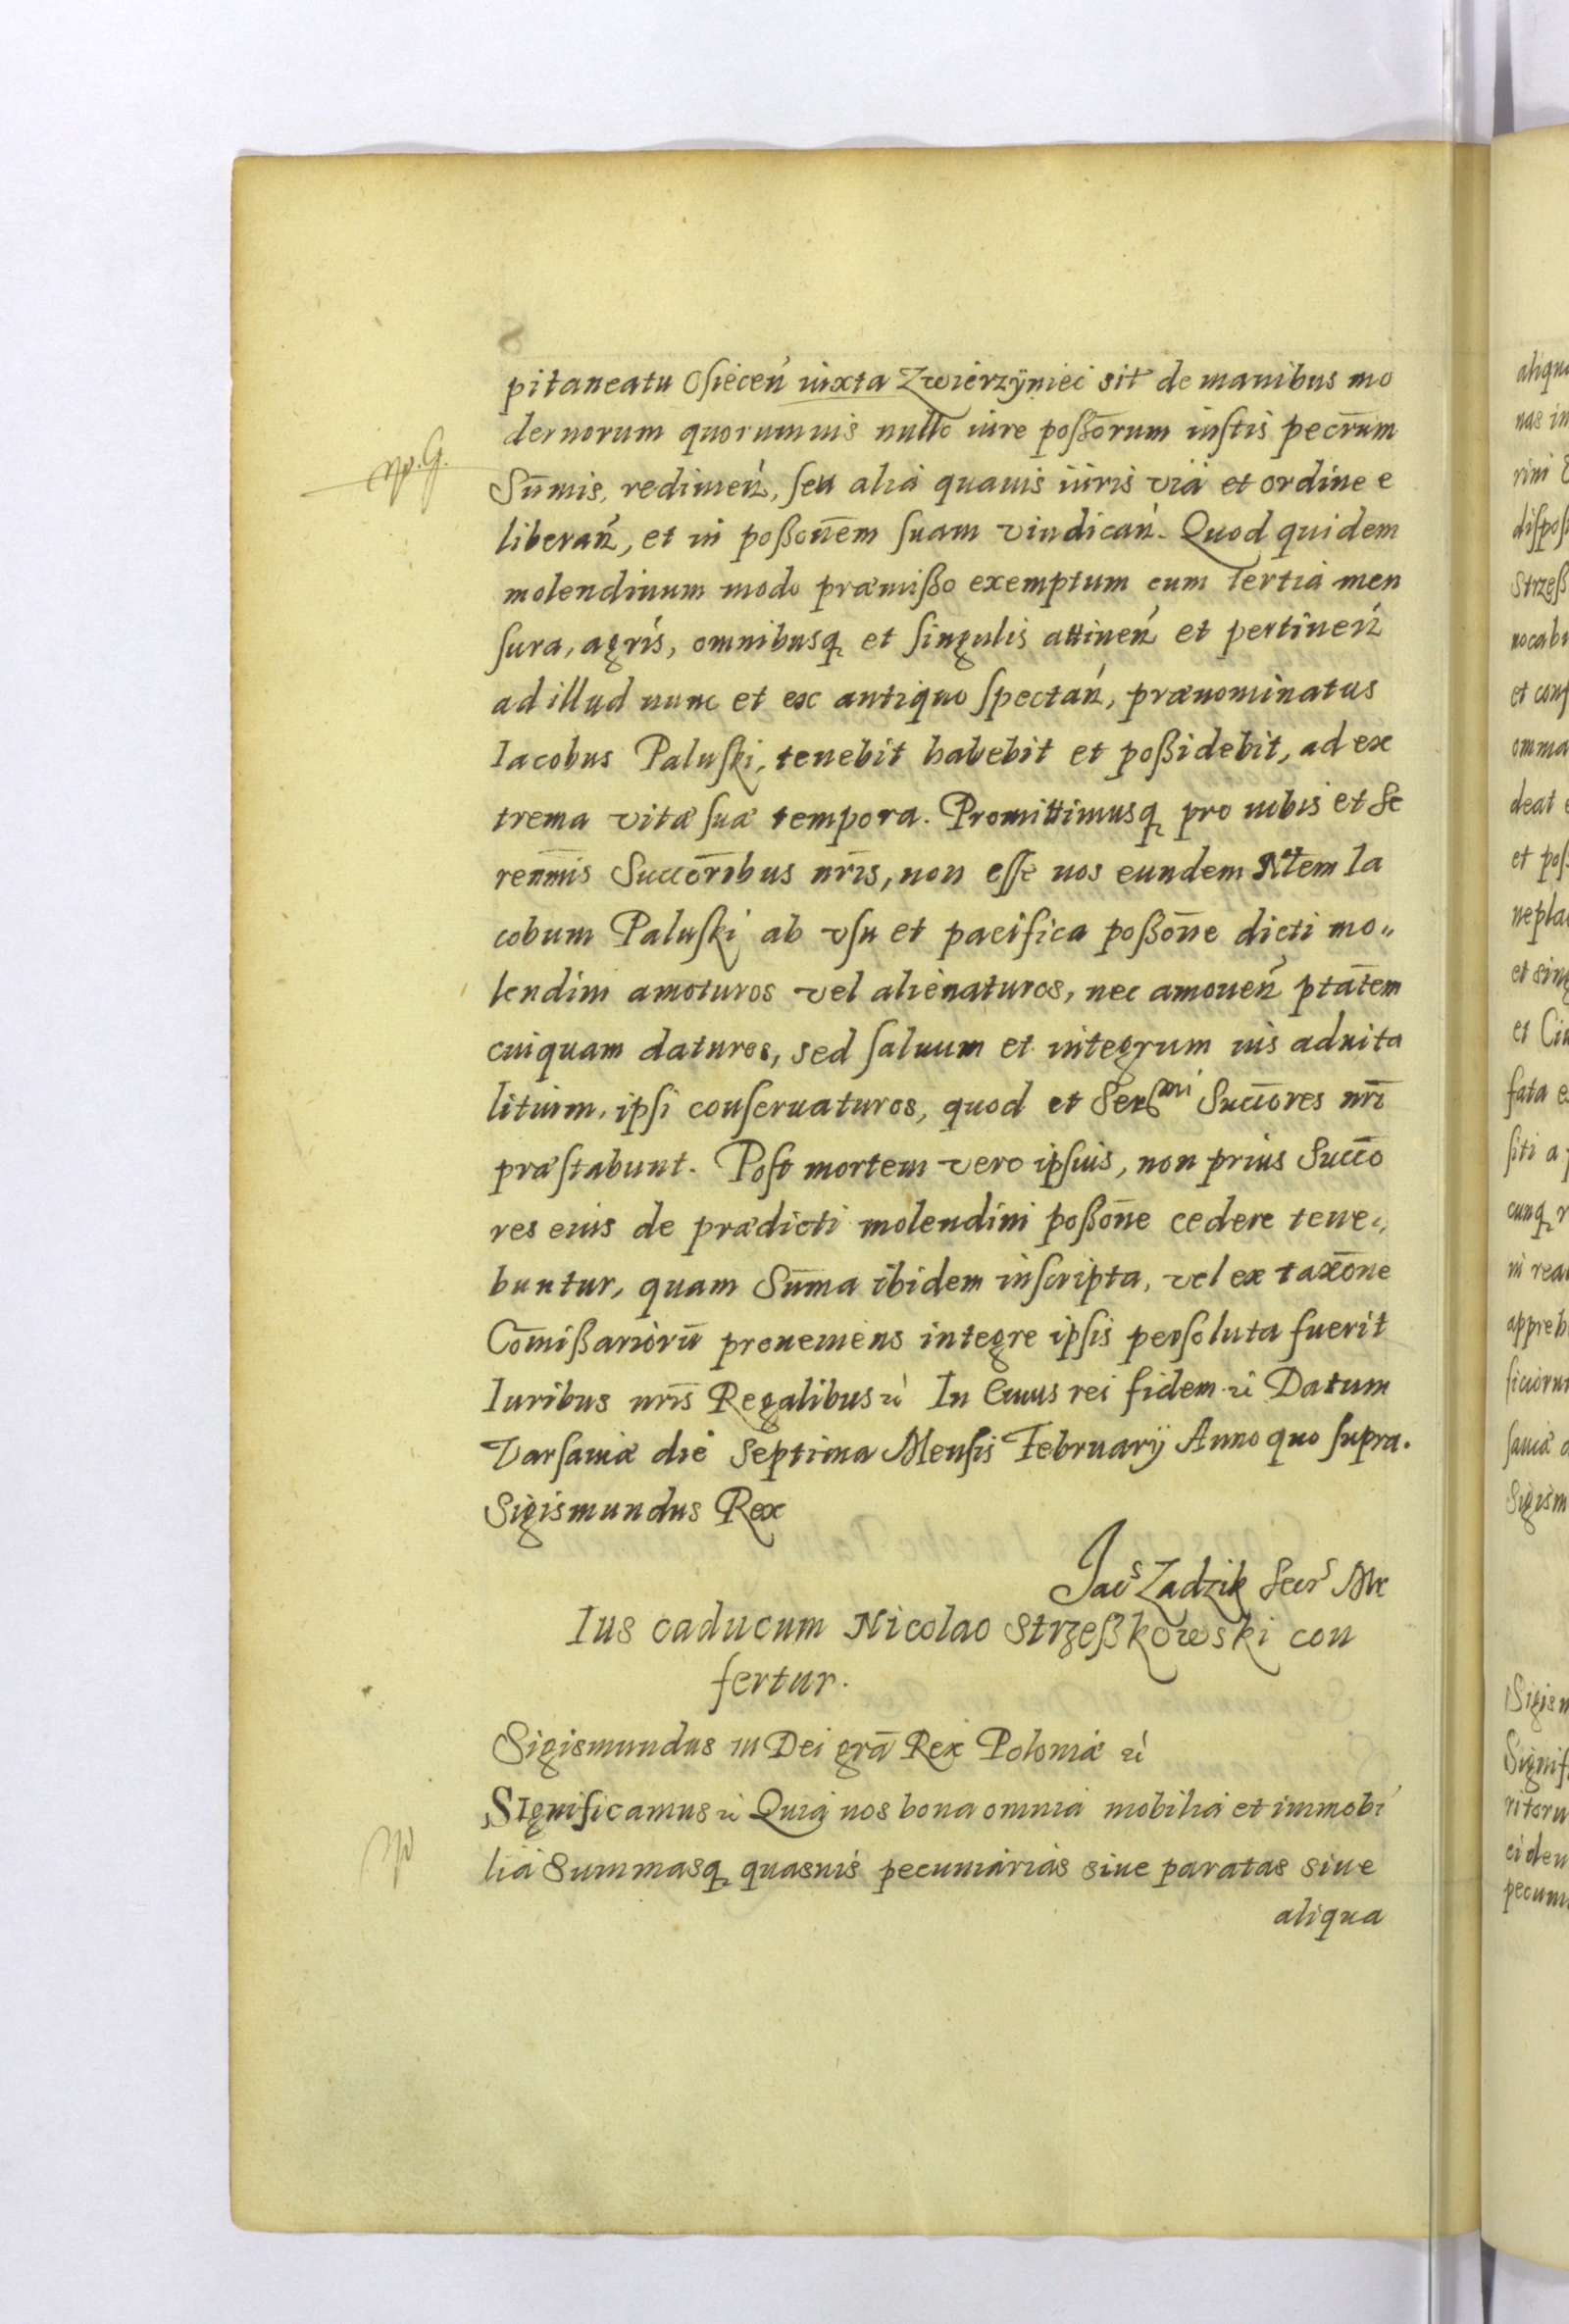 pitaneatu Osiecen̄ iuxta Zwierzÿniec sit de manibus mo
dernorum quorumuis nullo iure poßōrum iustis pecr̄um
Sūmis, redimen̄, seu alia quauis iuris via et ordine e
liberan̄, et in poßon̄em suam vindican̄. Quod quidem
molendinum modo præmißo exemptum cum tertia men
sura, agris, omnibusq, et singulis attinen̄ et pertinen̄
ad illud nunc et ex antiquo spectan̄, prænominatus
Iacobus Paluski, tenebit habebit et poßidebit, ad ex
trema vitæ suæ tempora. Promittimusq, pro nobis et Se
renm̄is Succōribus nr̄is, non esse nos eundem Ntem Ia
cobum Paluski ab vsu et pacifica poßōne dicti mo„
lendini amoturos vel alienaturos, nec amouen̄ ptātem
cuiquam daturos, sed saluum et integrum ius aduita
litium, ipsi conseruaturos, quod et Sermi Succōres nrī
præstabunt. Post mortem vero ipsius, non prius Succō
res eius de prædicti molendini poßōne cedere tene„
buntur, quam Sūma ibidem inscripta, vel ex taxōne
Cōmißariorū proueniens integre ipsis persoluta fuerit
Iuribus nr̄is Regalibus &c In Cuius rei fidem &c Datum
Varsauiæ die Septima Mensis Februarÿ Anno quo supra.
Sigismundus Rex
Jacs Zadzik Secrs Mr
Ius caducum Nicolao Strzeßkowski con
fertur.
Sigismundus III Dei grā Rex Poloniæ &c
Significamus &c Quia nos bona omnia mobilia et immobi
lia Summasq, quasuis pecuniarias siue paratas siue
aliqua